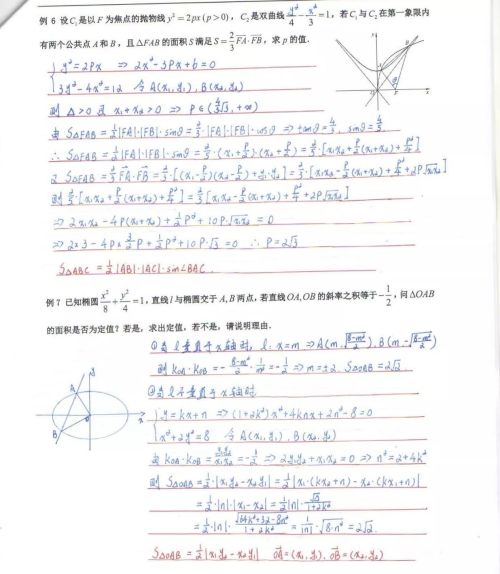 例 6 设C₁是以 F 为焦点的抛物线 y²=2px(p>0)，C₂是双曲线 y²/4 - x²/3 = 1，若C₁与C₂在第一象限内
有两个公共点 A 和 B，且△FAB 的面积 S 满足 S = 2/3 FA·FB，求 p 的值.
{ y²=2px ⇒ 2x²-3px+6=0
3y²-4x²=12 令 A(x₁,y₁), B(x₂,y₂)
则 Δ>0 且 x₁+x₂>0 ⇒
由 S△FAB = 1/2|FA|·|FB|·sinθ = 2/3·|FA|·|FB|·cosθ ⇒ tanθ=4/3, sinθ=4/5
∴ S△FAB = 1/2|FA|·|FB|·sinθ = 2/5·(x₁+p/2)·(x₂+p/2) = 2/5·[x₁x₂+p/2(x₁+x₂)+p²/4]
又 S△FAB = 2/3 FA·FB = 2/3·[(x₁-p/2)(x₂-p/2)+y₁y₂] = 2/3·[x₁x₂-p/2(x₁+x₂)+p²/4+2p√x₁x₂]
则 2/5·[x₁x₂+p/2(x₁+x₂)+p²/4] = 2/3[x₁x₂-p/2(x₁+x₂)+p²/4+2p√x₁x₂]
⇒ 2x₁x₂-4p(x₁+x₂)+1/2p²+10p√x₁x₂=0
⇒ 2×3-4p×3/2p+1/2p²+10p·√3=0 ∴ p=2√3
S△ABC = 1/2|AB|·|AC|·sin∠BAC
例 7 已知椭圆 x²/8 + y²/4 = 1，直线 l 与椭圆交于 A, B 两点，若直线 OA, OB 的斜率之积等于 -1/2，问△OAB
的面积是否为定值？若是，求出定值，若不是，请说明理由.
①当 l 垂直于 x 轴时，l: x=m ⇒ A(m,√(8-m²)/2), B(m,-√(8-m²)/2)
则 kOA·kOB = -(8-m²)/2·1/m² = -1/2 ⇒ m=±2. S△OAB=2√2.
②当 l 不垂直于 x 轴时
{ y=kx+n ⇒ (1+2k²)x²+4knx+2n²-8=0
x²+2y²=8 令 A(x₁,y₁), B(x₂,y₂)
由 kOA·kOB = y₁y₂/x₁x₂ = -1/2 ⇒ 2y₁y₂+x₁x₂=0 ⇒ n²=2+4k²
则 S△OAB = 1/2·|x₁y₂-x₂y₁| = 1/2|x₁·(kx₂+n)-x₂·(kx₁+n)|
= 1/2·|n|·|x₁-x₂| = 1/2|n|·√Δ/(1+2k²)
= 1/2·|n|·√(64k²+32-8n²)/(1+2k²) = 1/|n|·√(8·n²) = 2√2.
S△OAB = 1/2|x₁y₂-x₂y₁| OA=(x₁,y₁), OB=(x₂,y₂)